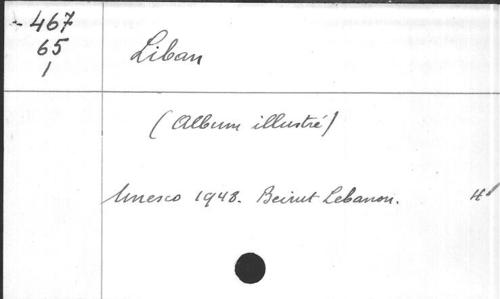 - 467
65
1
Liban
(Album illustré)
Unesco 1948. Beirut Lebanon.